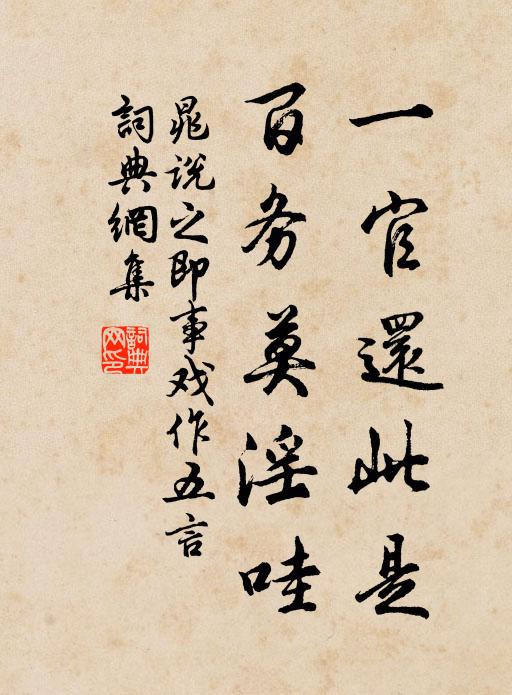 一官還此是
百务莫淫哇
晁说之即事戏作五言
詞典網集
詞典
网印